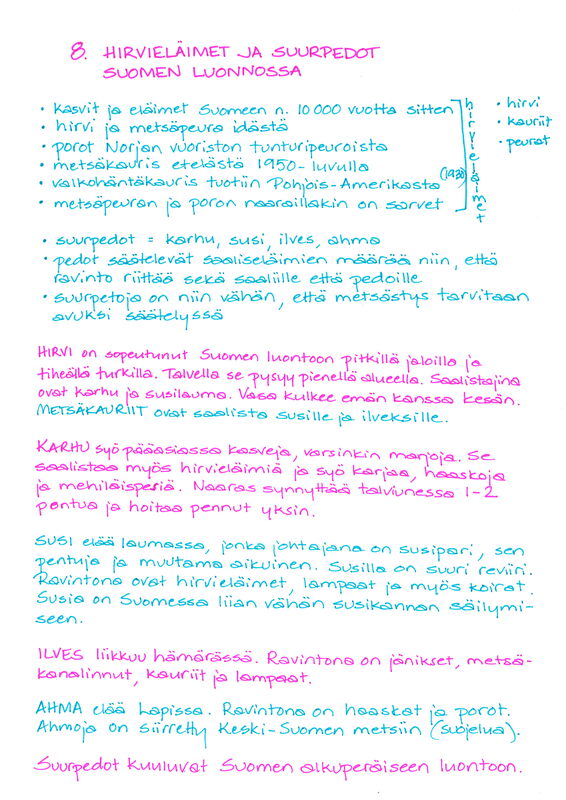 8. HIRVIELÄIMET JA SUURPEDOT
SUOMEN LUONNOSSA
• kasvit ja eläimet Suomeen n. 10 000 vuotta sitten
• hirvi ja metsäpeura idästä
• porot Norjan vuoriston tunturipeuroista
• metsäkauris etelästä 1950-luvulla
• valkohäntäkauris tuotiin Pohjois-Amerikasta (1930)
• metsäpeuran ja poron naaraillakin on sarvet
hirvieläimet
• hirvi
• kauriit
• peurat
• suurpedot = karhu, susi, ilves, ahma
• pedot säätelevät saaliseläimien määrää niin, että
ravinto riittää sekä saaliille että pedoille
• suurpetoja on niin vähän, että metsästys tarvitaan
avuksi säätelyssä
HIRVI on sopeutunut Suomen luontoon pitkillä jaloilla ja
tiheällä turkilla. Talvella se pysyy pienellä alueella. Saalistajina
ovat karhu ja susilauma. Vasa kulkee emän kanssa kesän.
METSÄKAURIIT ovat saalista susille ja ilveksille.
KARHU syö pääasiassa kasveja, varsinkin marjoja. Se
saalistaa myös hirvieläimiä ja syö karjaa, haaskoja
ja mehiläispesiä. Naaras synnyttää talviunessa 1-2
pentua ja hoitaa pennut yksin.
SUSI elää laumassa, jonka johtajana on susipari, sen
pentuja ja muutama aikuinen. Susilla on suuri reviiri.
Ravintona ovat hirvieläimet, lampaat ja myös koirat.
Susia on Suomessa liian vähän susikannan säilymi-
seen.
ILVES liikkuu hämärässä. Ravintona on jänikset, metsä-
kanalinnut, kauriit ja lampaat.
AHMA elää Lapissa. Ravintona on haaskat ja porot.
Ahmoja on siirretty Keski-Suomen metsiin (suojelua).
Suurpedot kuuluvat Suomen alkuperäiseen luontoon.